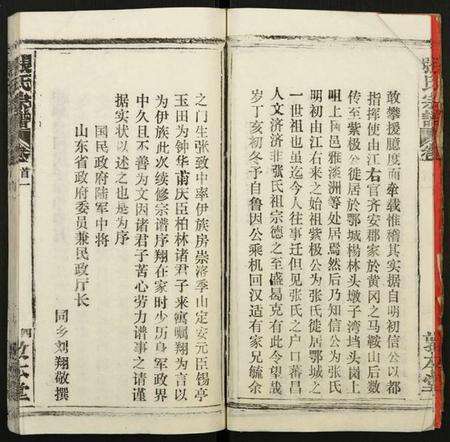 敢攀援臆度而牵载惟稽其实据自明初信公以都
指挥使由江右官齐安郡家於黄冈之马鞍山后数
传至紫极公徙居於鄂城杨林头墩子湾垱头岗上
咀上向邑雅淡洲等处居焉然后乃知信公为张氏
明初由江右来之始祖紫极公为张氏徙居鄂城之
一世祖也虽迄今人往事迁但见张氏之户口蕃昌
人文济济非张氏祖宗德之至盛曷克有此今望哉
岁丁亥初冬予自鲁因公乘机回汉适有家兄毓余
之门生张致中率伊族房崇溶季山定安元臣锡亭
玉田为钟华甫庆臣柏林诸君子来寓嘱翔为言以
为伊族此次续修宗谱序翔在家时少历身军政界
中久且不善为文因诸君子苦心劳力谱事之请谨
据实状以述之也是为序
国民政府陆军中将
山东省政府委员兼民政厅长
同乡刘翔敬撰
張氏宗譜
卷首一
四
張氏宗譜